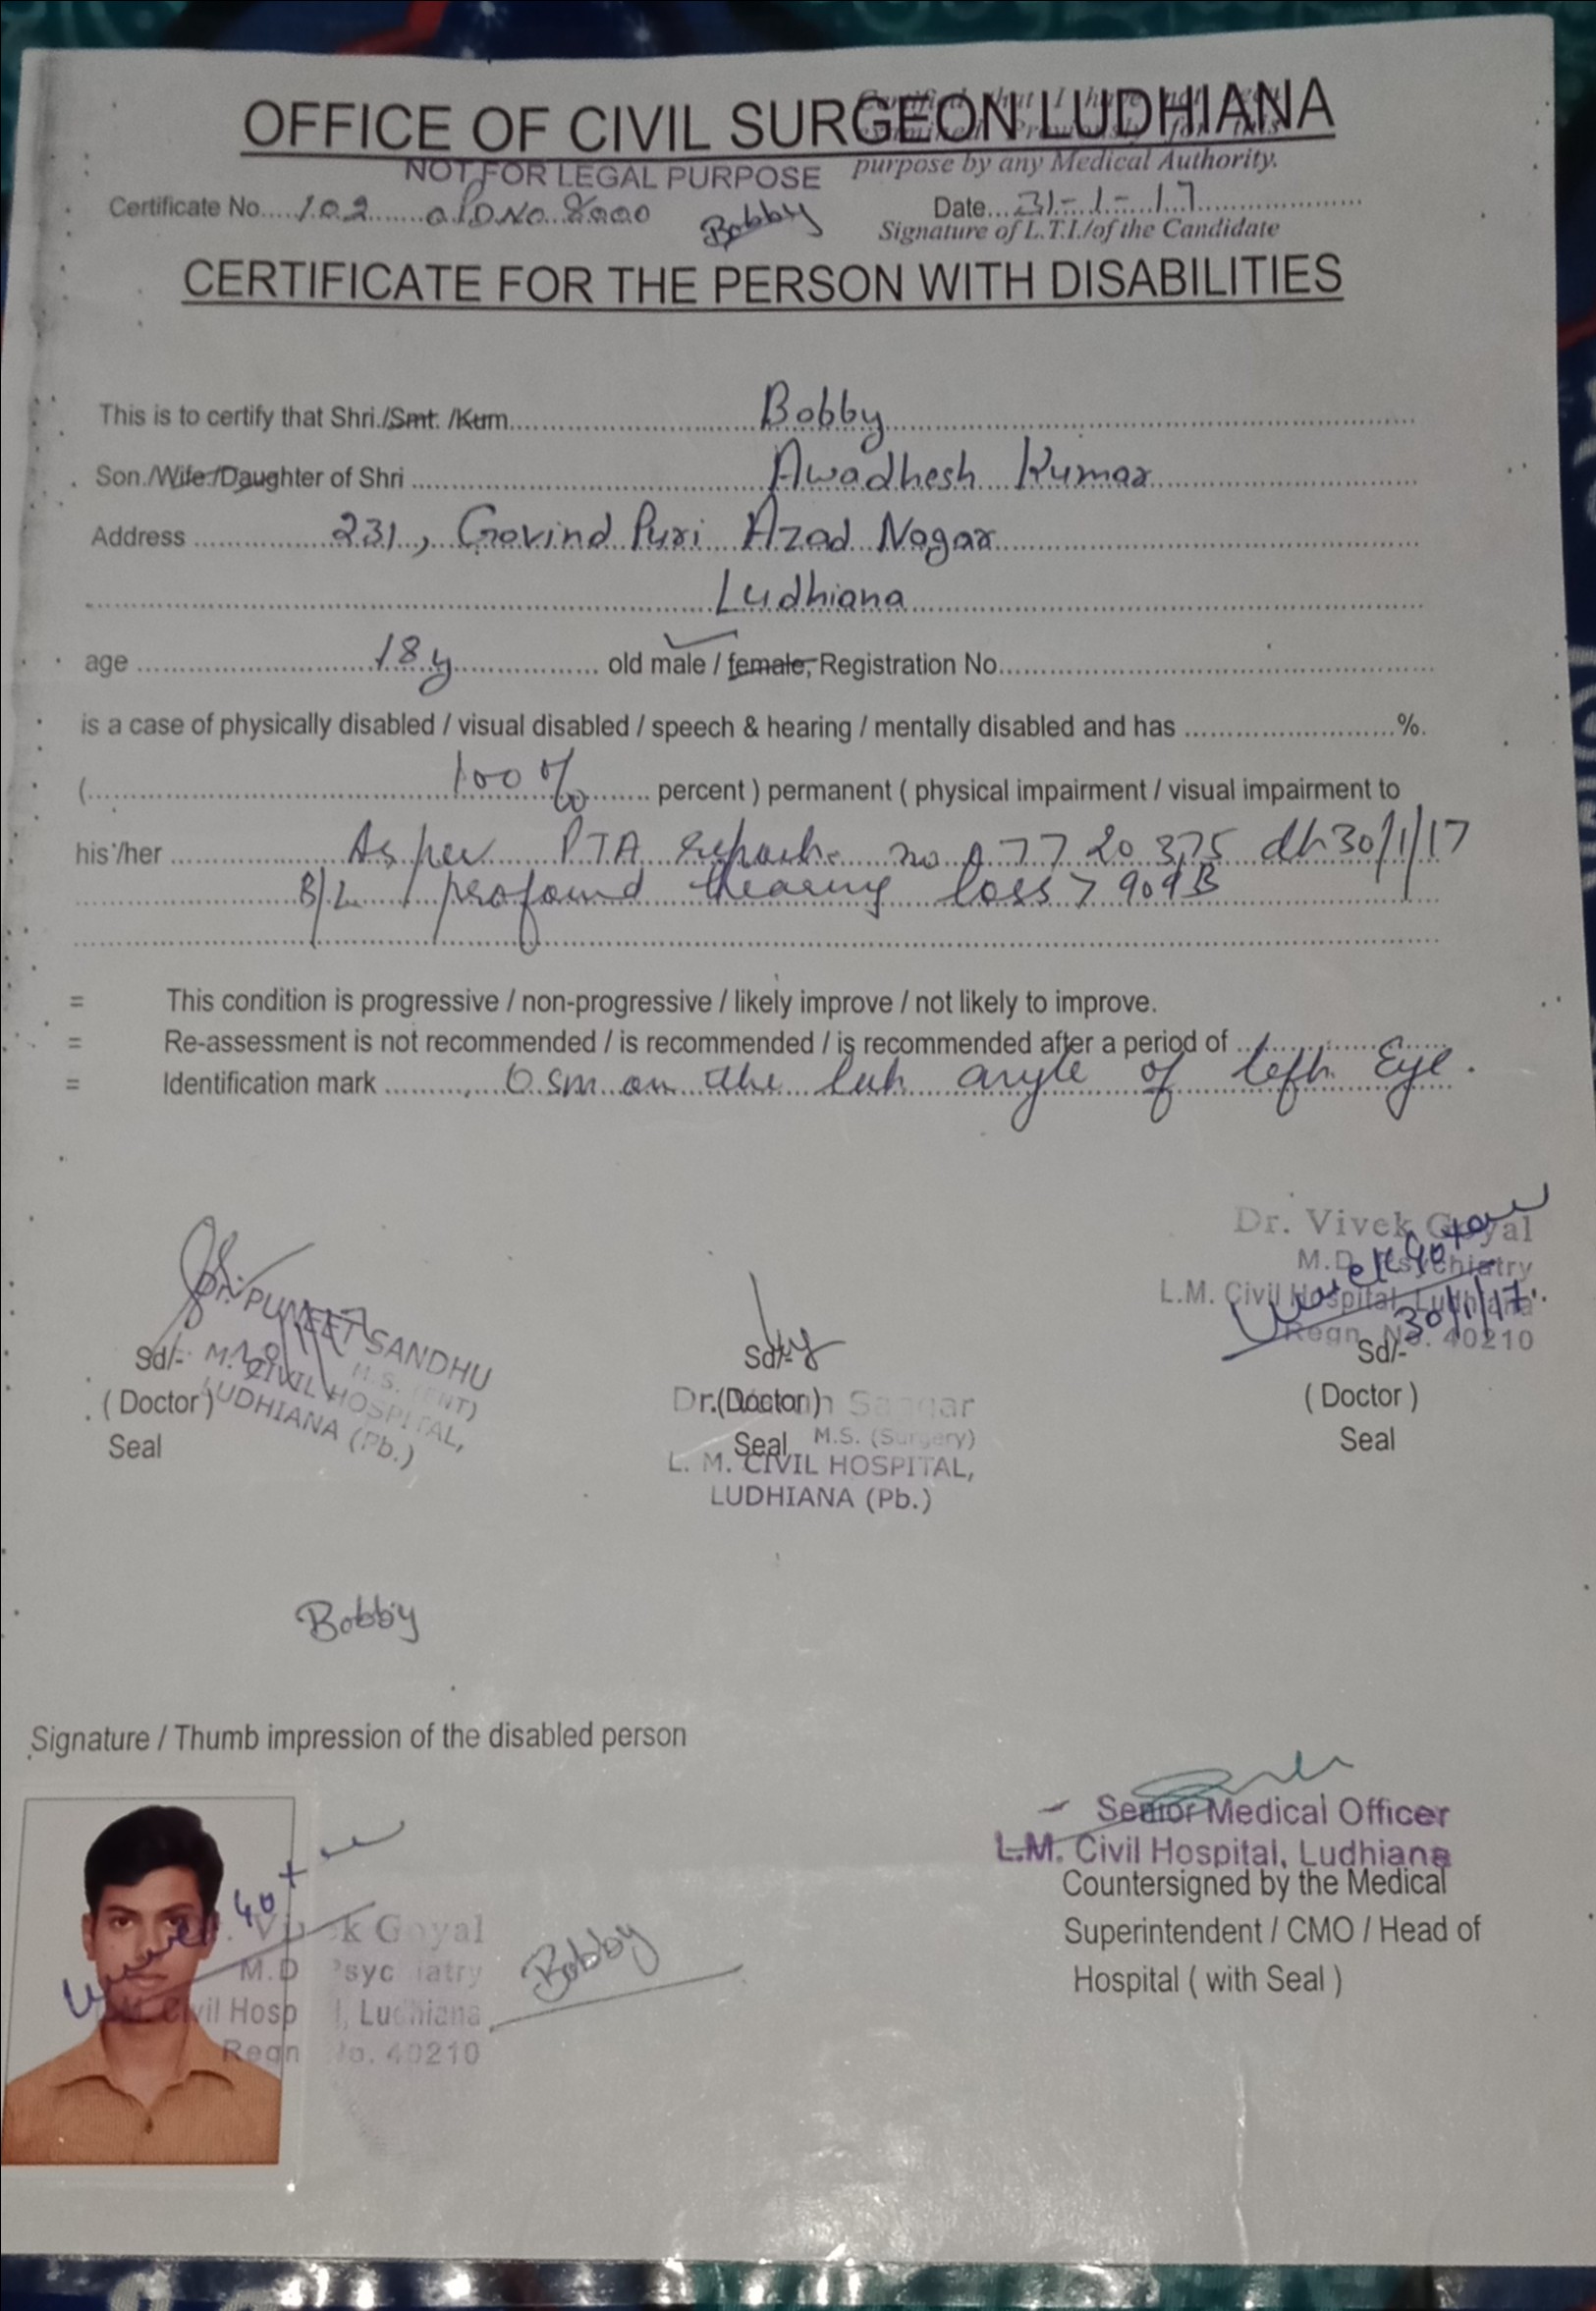 OFFICE OF CIVIL SURGEON LUDHIANA
Certified that I have not been
examined Previously for this
purpose by any Medical Authority.
NOT FOR LEGAL PURPOSE
Certificate No....102......OPD No
Bobby
Date...31-1-17
Signature of L.T.I./of the Candidate
CERTIFICATE FOR THE PERSON WITH DISABILITIES
This is to certify that Shri./Smt. /Kum. Bobby
Son./Wife./Daughter of Shri Awadhesh Kumar
Address 231, Govind Puri Azad Nagar
Ludhiana
age 18 y old male / female, Registration No.
is a case of physically disabled / visual disabled / speech & hearing / mentally disabled and has ........................%.
( 100 % percent ) permanent ( physical impairment / visual impairment to
his /her As per PTA report no 7720375 dt 30/1/17
B/L profound Hearing loss > 90dB
= This condition is progressive / non-progressive / likely improve / not likely to improve.
= Re-assessment is not recommended / is recommended / is recommended after a period of
= Identification mark on the angle of left Eye.
Dr. PUNEET SANDHU
M.S. (ENT)
L.M. CIVIL HOSPITAL,
LUDHIANA (Pb.)
Sd/-
( Doctor )
Seal
Sd/-
Dr.
(Doctor)
Seal
M.S. (Surgery)
L. M. CIVIL HOSPITAL,
LUDHIANA (Pb.)
Dr. Vivek Goyal
M.D. Psychiatry
L.M. Civil Hospital, Ludhiana
Regn. No. 40210
30/1/17
Sd/-
( Doctor )
Seal
Bobby
Signature / Thumb impression of the disabled person
Senior Medical Officer
L.M. Civil Hospital, Ludhiana
Countersigned by the Medical
Superintendent / CMO / Head of
Hospital ( with Seal )
Vivek Goyal
M.D Psychiatry
L.M. Civil Hospital, Ludhiana
Regn No. 40210
Bobby